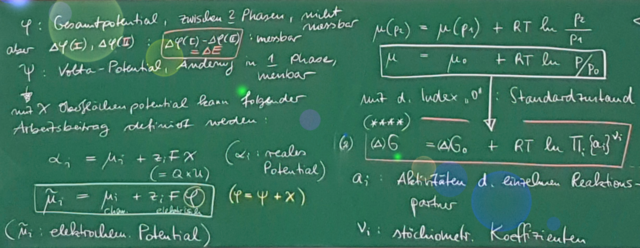 φ : Gesamtpotential, zwischen 2 Phasen, nicht messbar
aber Δφ(I), Δφ(II) : Δφ(I) - Δφ(II) = ΔE : messbar
ψ : Volta-Potential, Änderung in 1 Phase, messbar
mit χ Oberflächenpotential kann folgender
Arbeitsbeitrag definiert werden:
α_i = μ_i + z_i F χ (α_i : reales Potential)
(= Q × U)
μ̃_i = μ_i + z_i F φ (φ = ψ + χ)
chem. elektrisch
(μ̃_i : elektrochem. Potential)
μ(p₂) = μ(p₁) + RT ln p₂/p₁
μ = μ₀ + RT ln p/p₀
mit d. Index "0" : Standardzustand
(****)
(Δ)G = ΔG₀ + RT ln Π_i {a_i}^ν_i
a_i : Aktivitäten d. einzelnen Reaktions-
partner
ν_i : stöchiometr. Koeffizienten